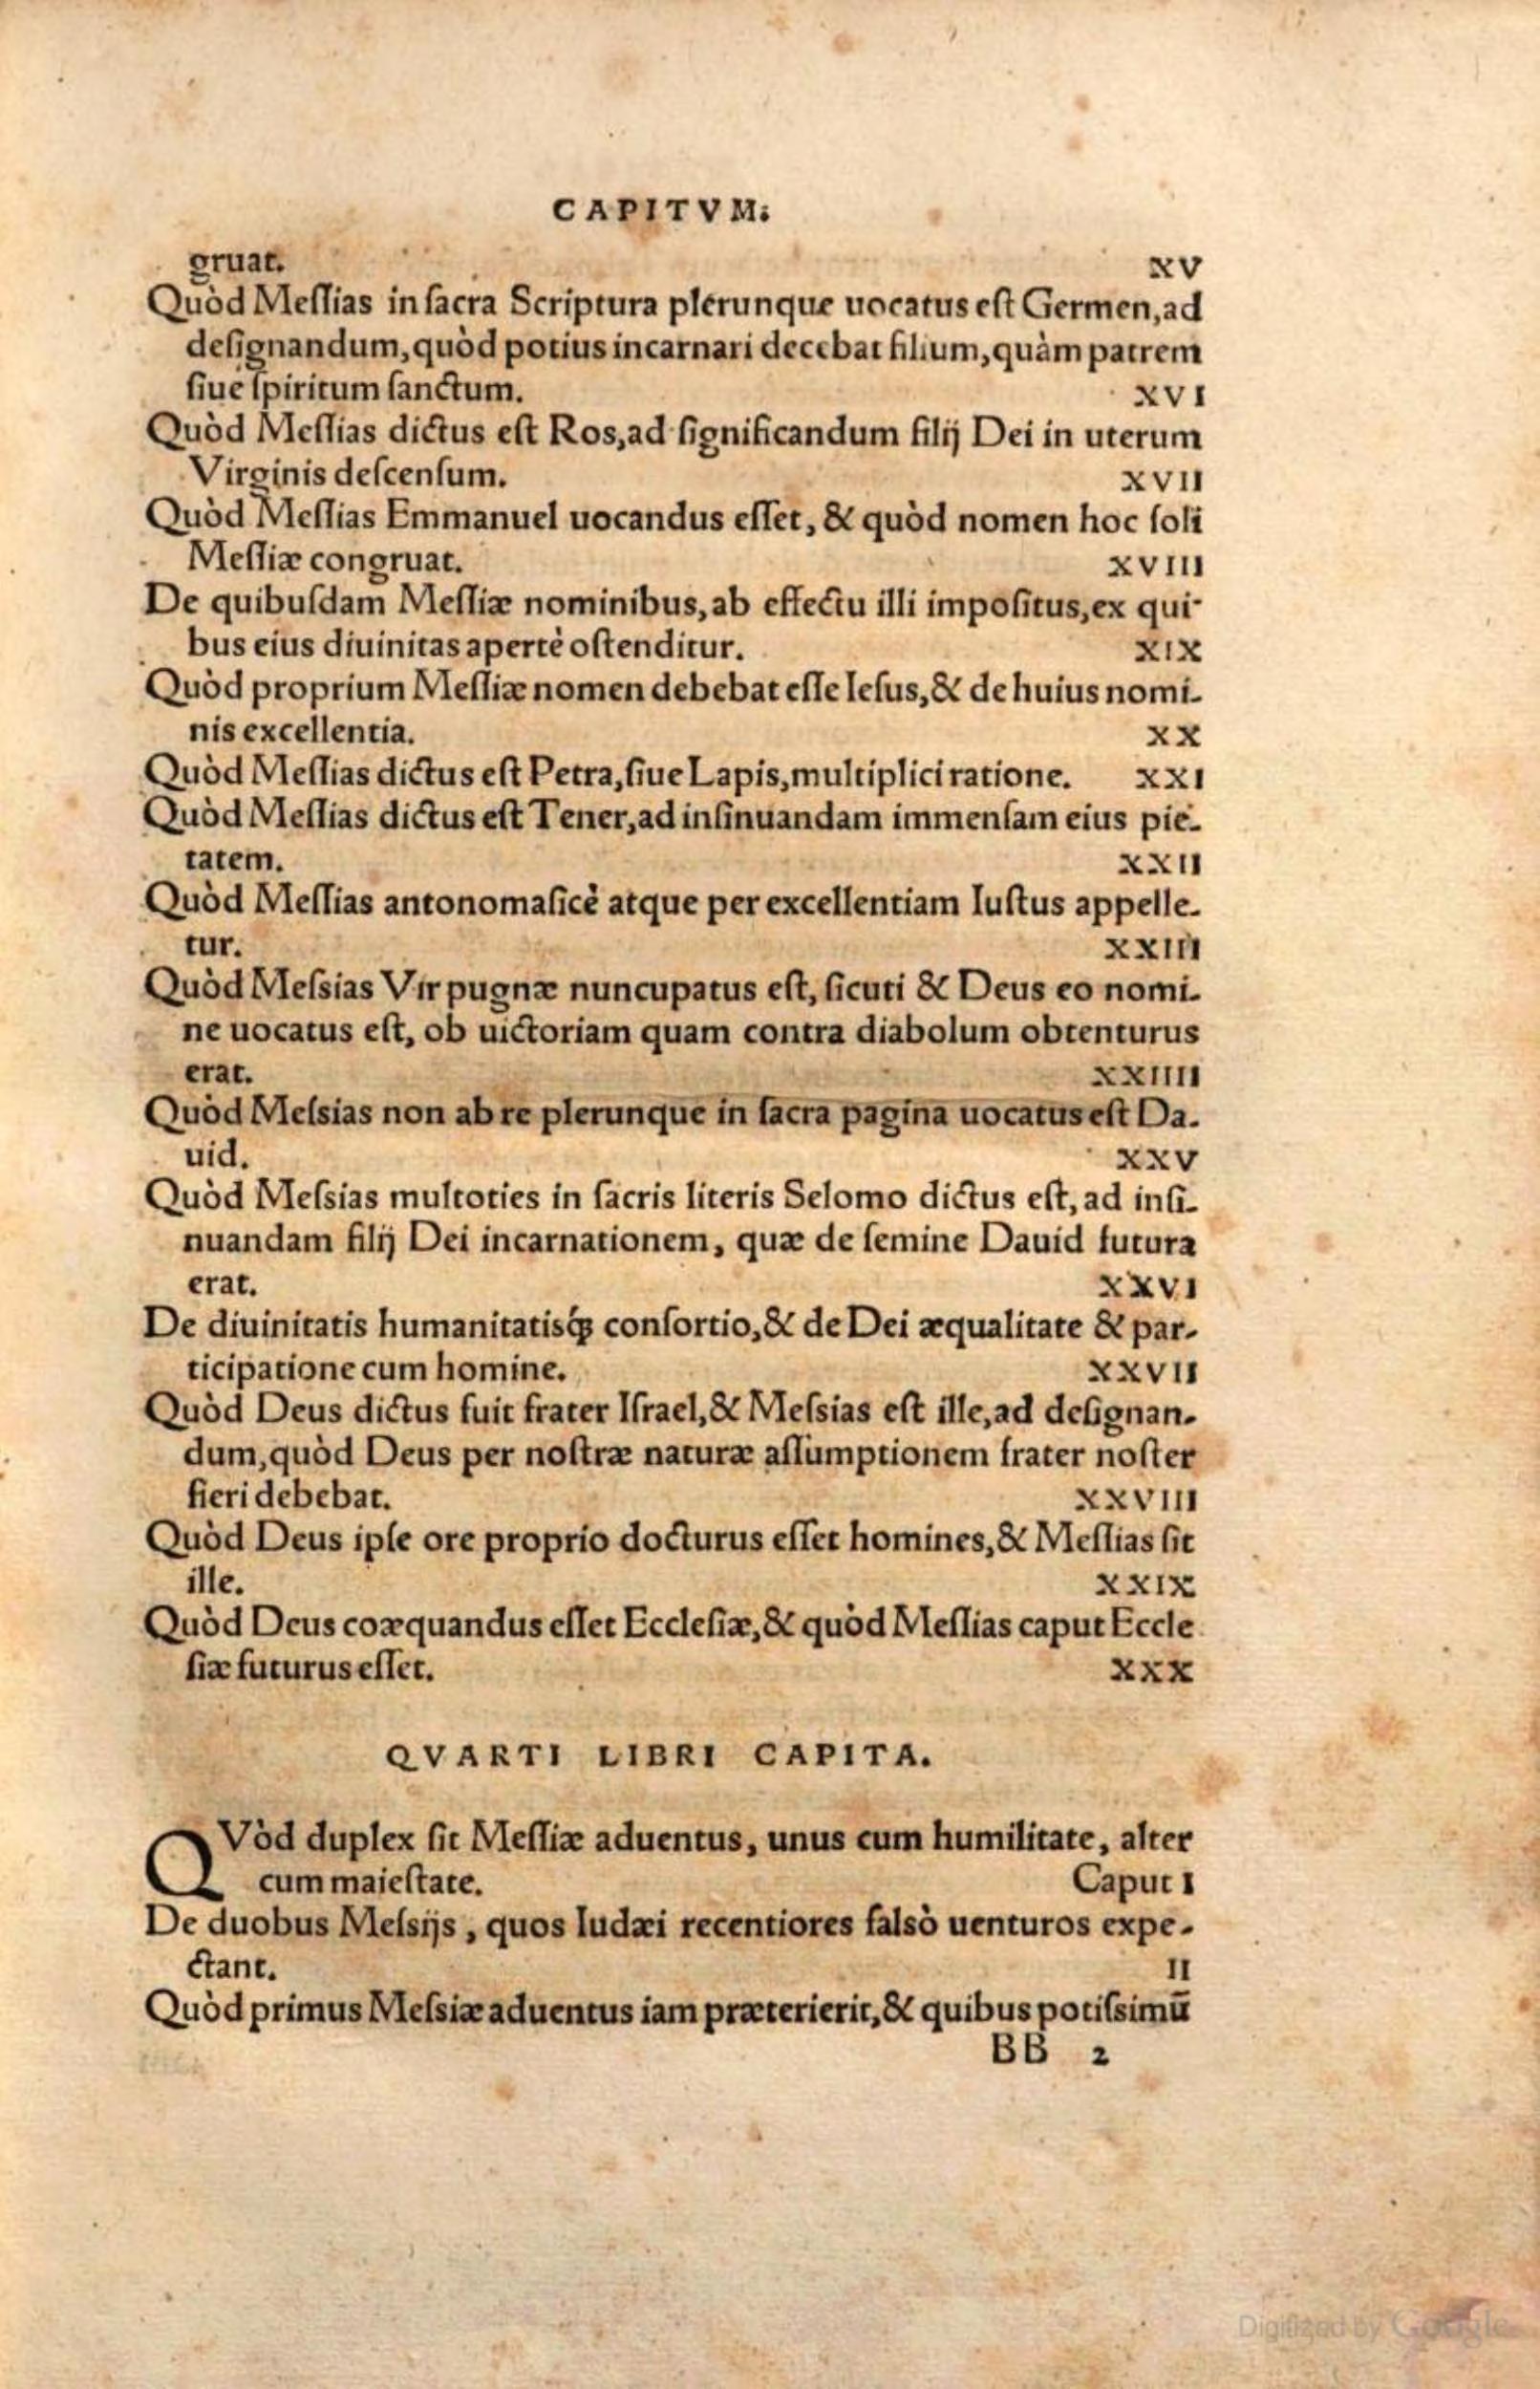 CAPITVM.
gruat. XV
Quòd Meſſias in ſacra Scriptura plerunque uocatus eſt Germen, ad
deſignandum, quòd potius incarnari decebat filium, quàm patrem
ſiue ſpiritum ſanctum. XVI
Quòd Meſſias dictus eſt Ros, ad ſignificandum filij Dei in uterum
Virginis deſcenſum. XVII
Quòd Meſſias Emmanuel uocandus eſſet, & quòd nomen hoc ſoli
Meſſiæ congruat. XVIII
De quibuſdam Meſſiæ nominibus, ab effectu illi impoſitus, ex qui-
bus eius diuinitas apertè oſtenditur. XIX
Quòd proprium Meſſiæ nomen debebat eſſe Ieſus, & de huius nomi-
nis excellentia. XX
Quòd Meſſias dictus eſt Petra, ſiue Lapis, multiplici ratione. XXI
Quòd Meſſias dictus eſt Tener, ad inſinuandam immenſam eius pie-
tatem. XXII
Quòd Meſſias antonomaſicè atque per excellentiam Iuſtus appelle-
tur. XXIII
Quòd Meſsias Vir pugnæ nuncupatus eſt, ſicuti & Deus eo nomi-
ne uocatus eſt, ob uictoriam quam contra diabolum obtenturus
erat. XXIIII
Quòd Meſsias non ab re plerunque in ſacra pagina uocatus eſt Da-
uid. XXV
Quòd Meſsias multoties in ſacris literis Selomo dictus eſt, ad inſi-
nuandam filij Dei incarnationem, quæ de ſemine Dauid futura
erat. XXVI
De diuinitatis humanitatisq́ꝫ conſortio, & de Dei æqualitate & par-
ticipatione cum homine. XXVII
Quòd Deus dictus fuit frater Iſrael, & Meſsias eſt ille, ad deſignan-
dum, quòd Deus per noſtræ naturæ aſſumptionem frater noſter
fieri debebat. XXVIII
Quòd Deus ipſe ore proprio docturus eſſet homines, & Meſſias ſit
ille. XXIX
Quòd Deus coæquandus eſſet Eccleſiæ, & quòd Meſſias caput Eccle
ſiæ futurus eſſet. XXX
QVARTI LIBRI CAPITA.
QVòd duplex ſit Meſſiæ aduentus, unus cum humilitate, alter
cum maieſtate. Caput I
De duobus Meſsijs, quos Iudæi recentiores falsò uenturos expe-
ctant. II
Quòd primus Meſsiæ aduentus iam præterierit, & quibus potiſsimũ
BB 2
Digitized by Google